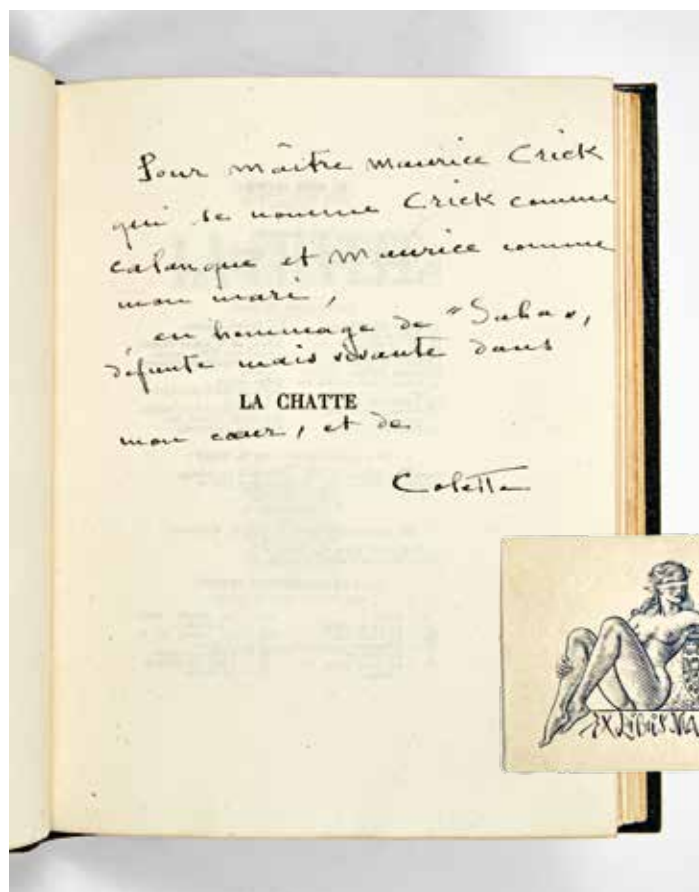 Pour maître Maurice Crick
qui se nomme Crick comme
calanque et Maurice comme
mon mari,
en hommage de "Saha",
défunte mais vivante dans
LA CHATTE
mon cœur, et de
Colette
EX LIBRIS MA